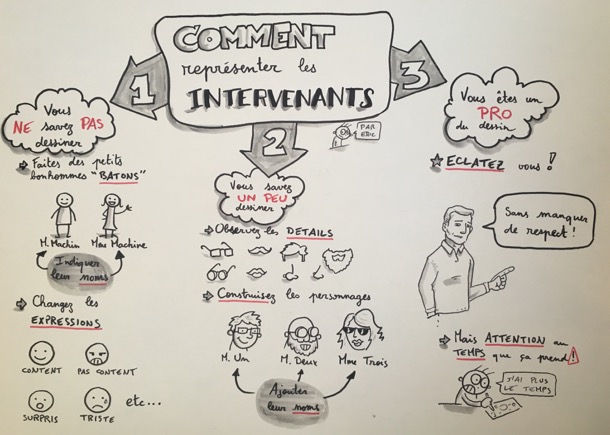 COMMENT
représenter les
INTERVENANTS
PAR
ERIC
1
Vous
NE savez PAS
dessiner
Faites des petits
bonhommes "BATONS"
M. Machin
Mme Machine
Indiquer
leur noms
Changez les
EXPRESSIONS
CONTENT
PAS CONTENT
SURPRIS
TRISTE
etc...
2
Vous savez
UN PEU
dessiner
Observez les DETAILS
Construisez les personnages
M. Un
M. Deux
Mme Trois
Ajouter
leur noms
3
Vous êtes un
PRO
du dessin
ECLATEZ vous !
Sans manquer
de respect !
Mais ATTENTION au
TEMPS que ça prend !
J'AI PLUS
LE TEMPS